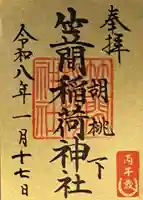 奉拝
胡桃下
笠間稲荷神社
令和八年一月十七日
丙午歳